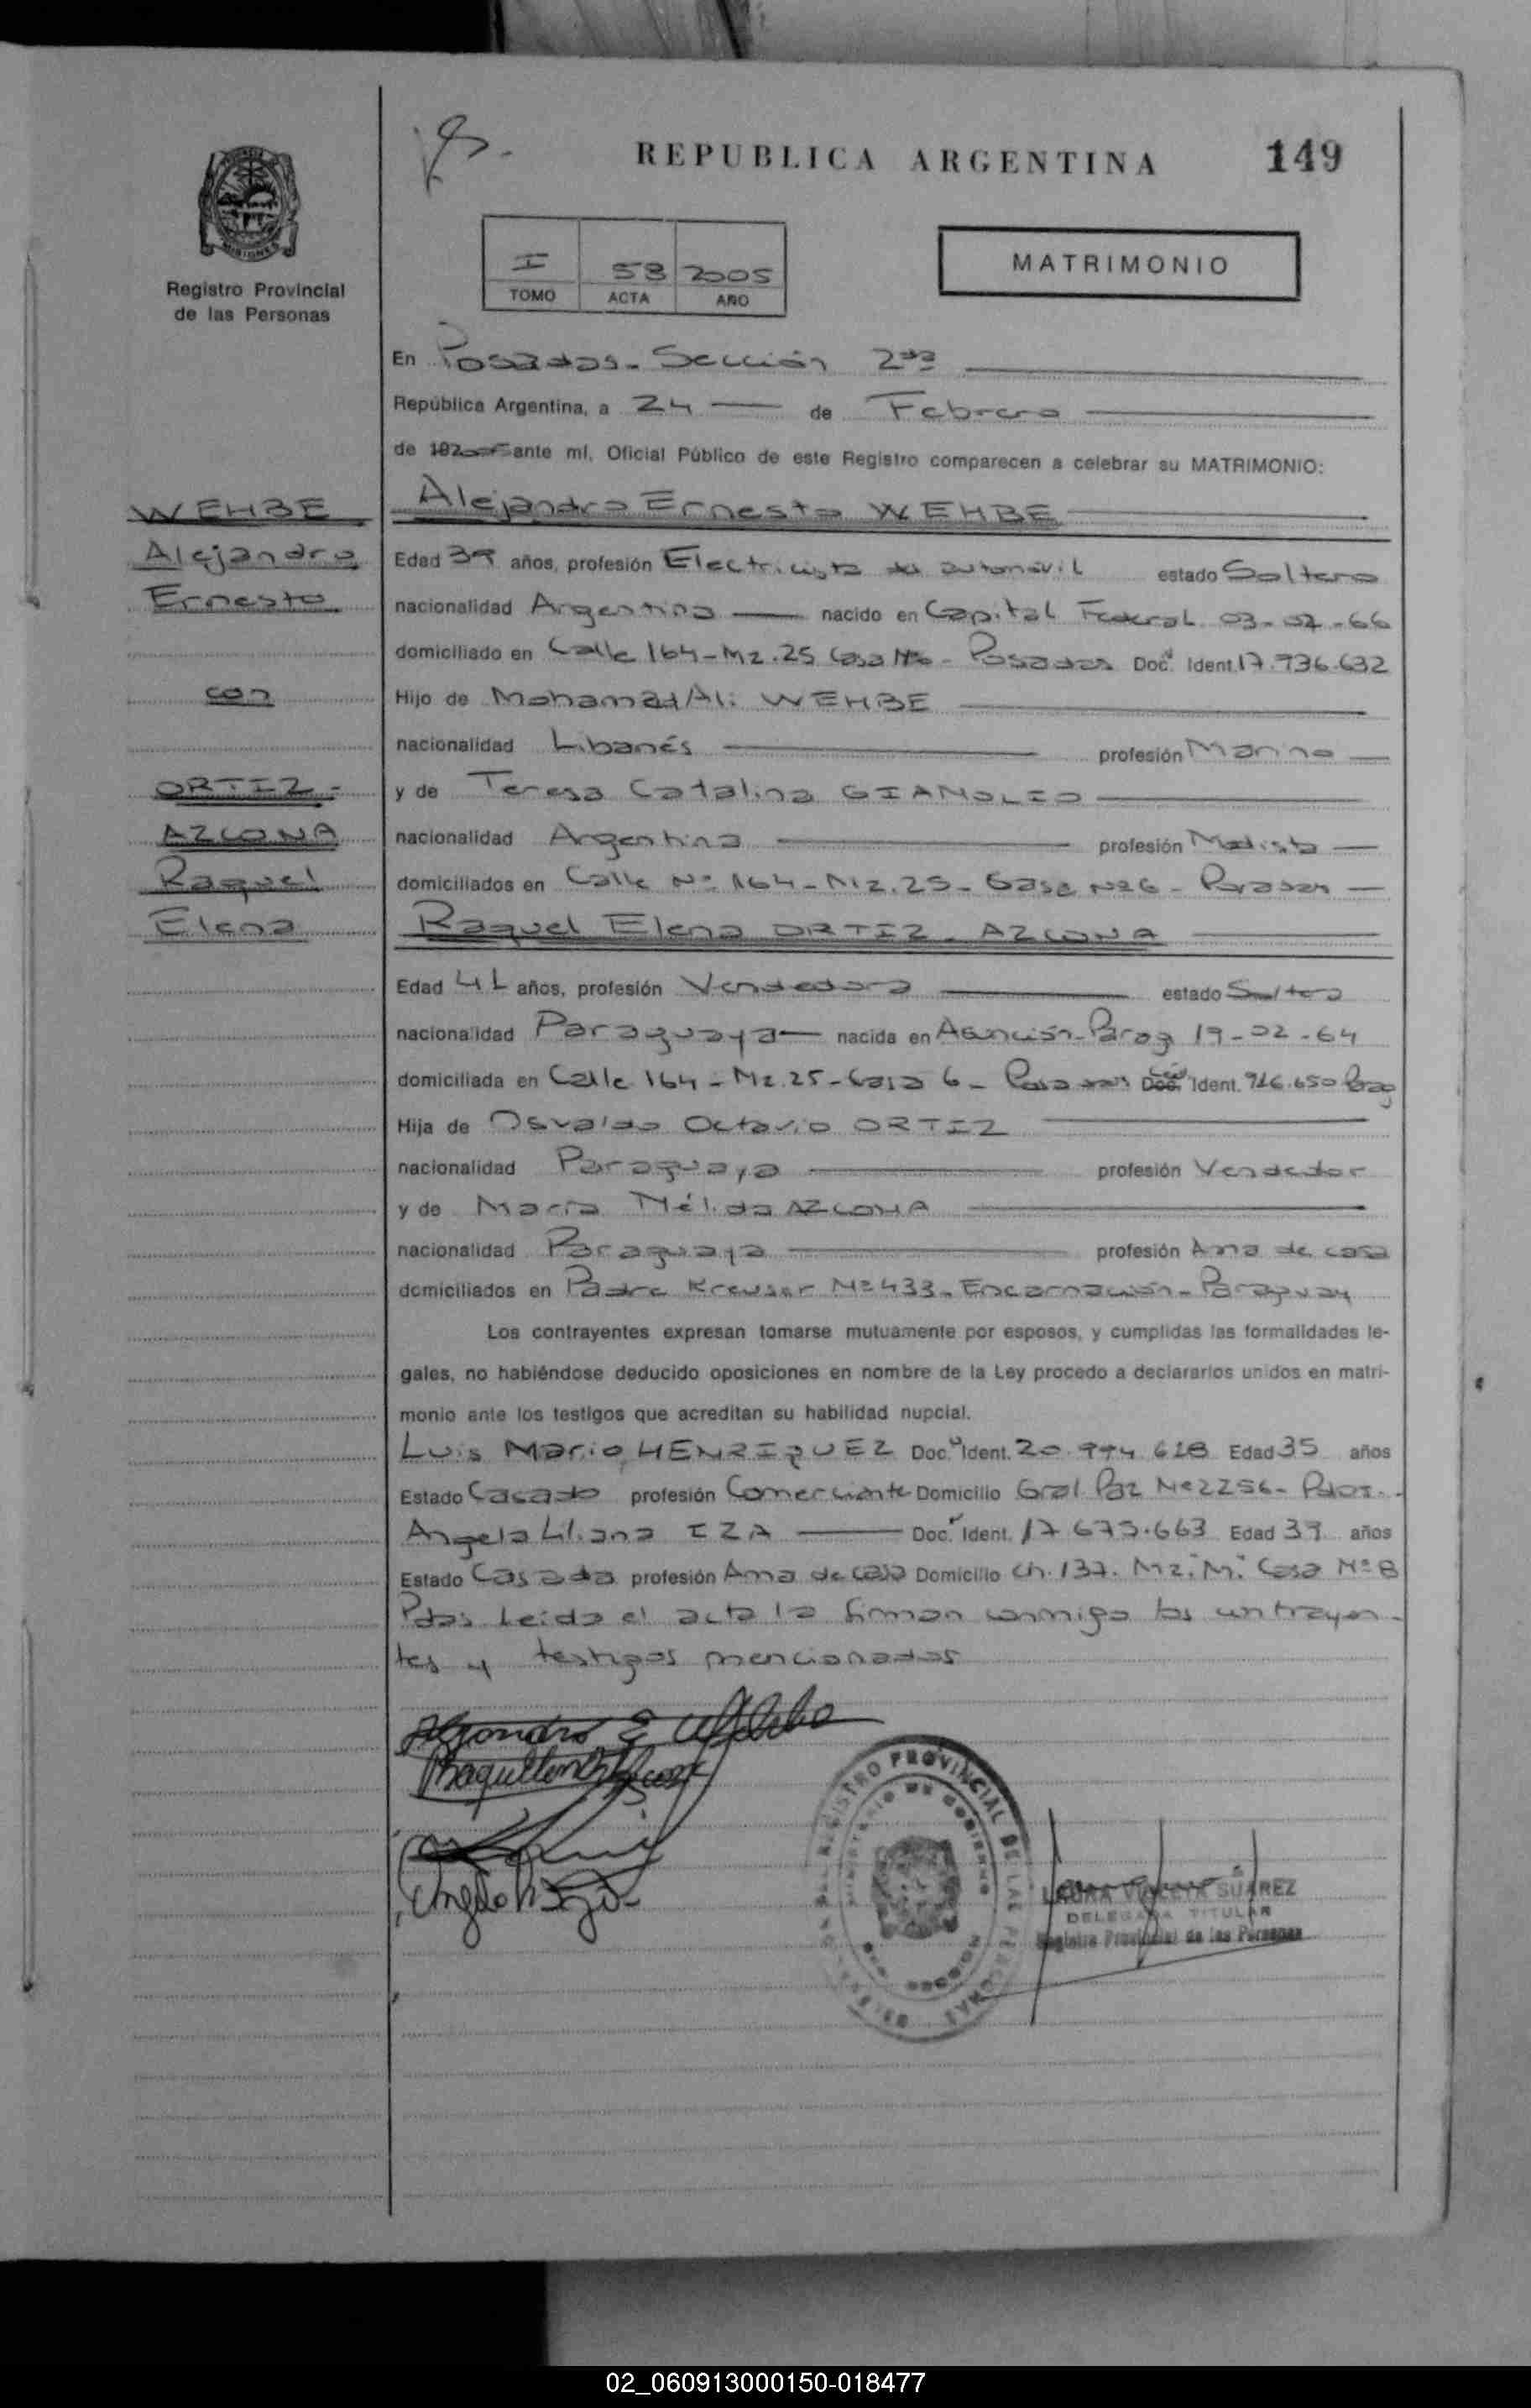 REPUBLICA ARGENTINA
149
MISIONES
Registro Provincial
de las Personas
I 58 2005
TOMO ACTA AÑO
MATRIMONIO
En Posadas - Sección 2da
República Argentina, a 24 de Febrero
de ante mí, Oficial Público de este Registro comparecen a celebrar su MATRIMONIO:
WEHBE
Alejandro
Ernesto
con
ORTIZ -
AZCONA
Raquel
Elena
Alejandro Ernesto WEHBE
Edad 39 años, profesión Electricista del automóvil estado Soltero
nacionalidad Argentina nacido en Capital Federal 03-02-66
domiciliado en Calle 164 - Mz. 25 Casa Nº6 - Posadas Doc. Ident. 17.736.632
Hijo de Mohamad Ali WEHBE
nacionalidad Libanés profesión Marino
y de Teresa Catalina GIANOLIO
nacionalidad Argentina profesión Modista
domiciliados en Calle Nº 164 - Mz. 25 - Casa Nº6 - Posadas
Raquel Elena ORTIZ - AZCONA
Edad 41 años, profesión Vendedora estado Soltera
nacionalidad Paraguaya nacida en Asunción - Parag 19-02-64
domiciliada en Calle 164 - Mz. 25 - Casa 6 - Posadas Ident. 926.650 Parag
Hija de Osvaldo Octavio ORTIZ
nacionalidad Paraguaya profesión Vendedor
y de María Nélida AZCONA
nacionalidad Paraguaya profesión Ama de casa
domiciliados en Padre Kreusser Nº 433 - Encarnación - Paraguay
Los contrayentes expresan tomarse mutuamente por esposos, y cumplidas las formalidades le-
gales, no habiéndose deducido oposiciones en nombre de la Ley procedo a declararlos unidos en matri-
monio ante los testigos que acreditan su habilidad nupcial.
Luis Mario HENRIQUEZ Doc. Ident. 20.994.628 Edad 35 años
Estado Casado profesión Comerciante Domicilio Gral Paz Nº 2256 - Pdas.
Angela Liliana IZA Doc. Ident. 17.675.663 Edad 39 años
Estado Casada profesión Ama de casa Domicilio Ch. 137. Mz. "M" Casa Nº 8
Pdas Leída el acta la firman conmigo los contrayen-
tes y testigos mencionados
Alejandro E Wehbe
REGISTRO PROVINCIAL DE LAS PERSONAS
MINISTERIO DE GOBIERNO
LAURA VIOLETA SUAREZ
DELEGADA TITULAR
Registro Provincial de las Personas
02_060913000150-018477